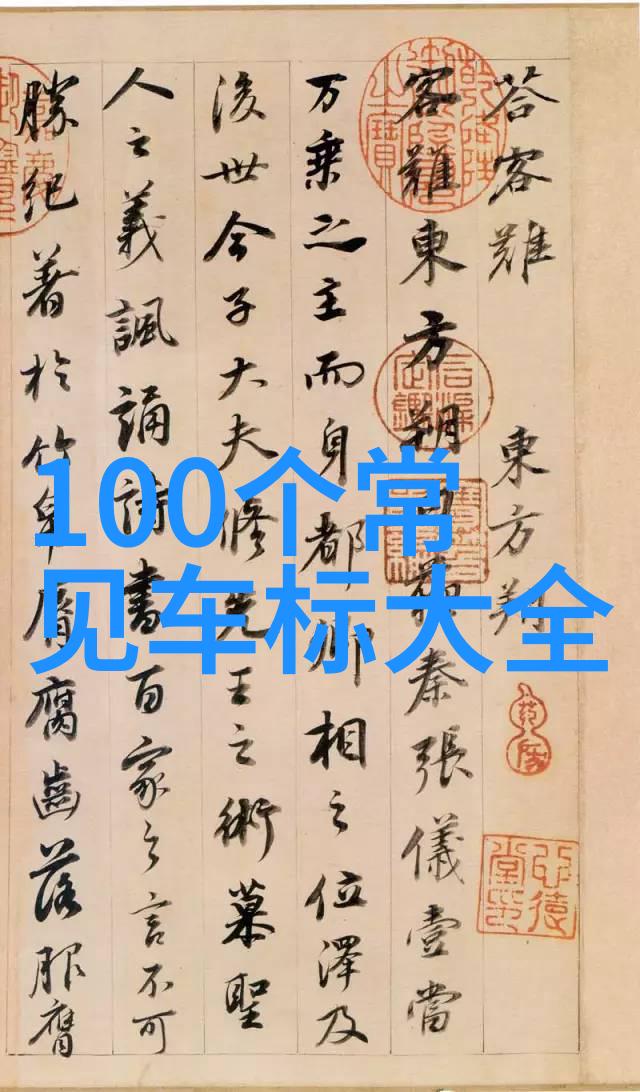 100个常
见车标大全
荅客難 東方朔
客難東方朔曰蘇秦張儀壹當
万乗之主而身都卿相之位澤及
後世今子大夫脩先王之術慕聖
人之義諷誦詩書百家之言不可
勝紀著於竹帛脣腐齒落服膺